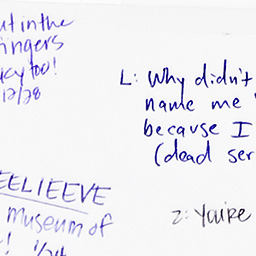 ut in the
ingers
icy too!
12/28
L: Why didn't
name me
because I
(dead ser
EELIEEVE
museum of
! 1/24
2: Yaire